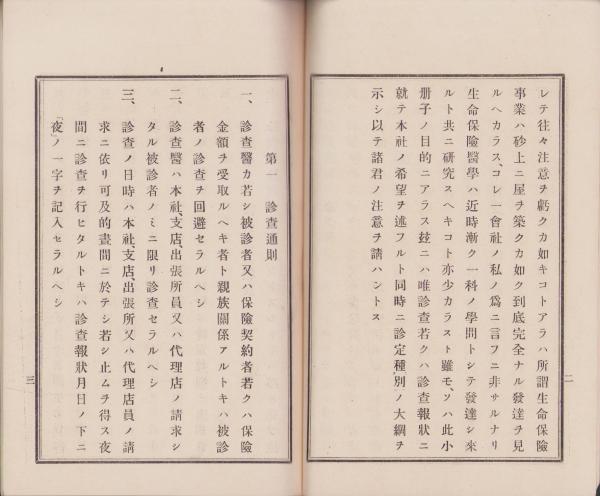 レテ往々注意ヲ虧クカ如キコトアラハ所謂生命保險
事業ハ砂上ニ屋ヲ築クカ如ク到底完全ナル發達ヲ見
ルヘカラス、コレ一會社ノ私ノ爲ニ言フニ非サルナリ
生命保險醫學ハ近時漸ク一科ノ學問トシテ發達シ來
ルト共ニ研究スヘキコト亦少カラスト雖モ、ソハ此小
册子ノ目的ニアラス玆ニハ唯診査若クハ診査報狀ニ
就テ本社ノ希望ヲ述フルト同時ニ診定種別ノ大綱ヲ
示シ以テ諸君ノ注意ヲ請ハントス
二
第一 診査通則
一、診査醫カ若シ被診者又ハ保險契約者若クハ保險
金額ヲ受取ルヘキ者ト親族關係アルトキハ被診
者ノ診査ヲ回避セラルヘシ
二、診査醫ハ本社、支店、出張所員又ハ代理店ノ請求シ
タル被診者ノミニ限リ診査セラルヘシ
三、診查ノ日時ハ本社、支店、出張所又ハ代理店員ノ請
求ニ依リ可及的晝間ニ於テシ若シ止ムヲ得ス夜
間ニ診查ヲ行ヒタルトキハ診查報狀月日ノ下ニ
「夜」ノ一字ヲ記入セラルヘシ
三